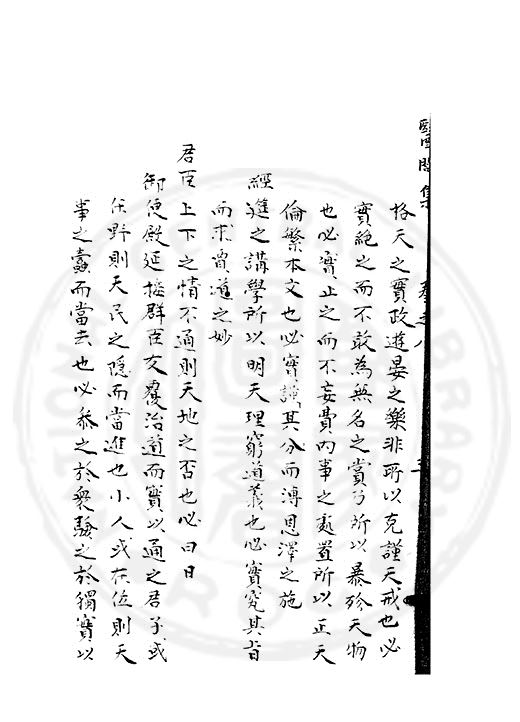 格天之實政遊晏之樂非所以克謹天戒也必
實絕之而不敢為無名之賞乃所以暴殄天物
也必實止之而不妄費內事之處置所以正天
倫繁本文也必實議其分而溥恩澤之施
經筵之講學所以明天理窮道義也必實究其旨
而求貫道之妙
君臣上下之情不通則天地之否也必日日
御便殿延接群臣反覆治道而實以通之君子或
在野則天民之隱而當進也小人或在位則天
事之蠹而當去也必參之於衆驗之於獨實以